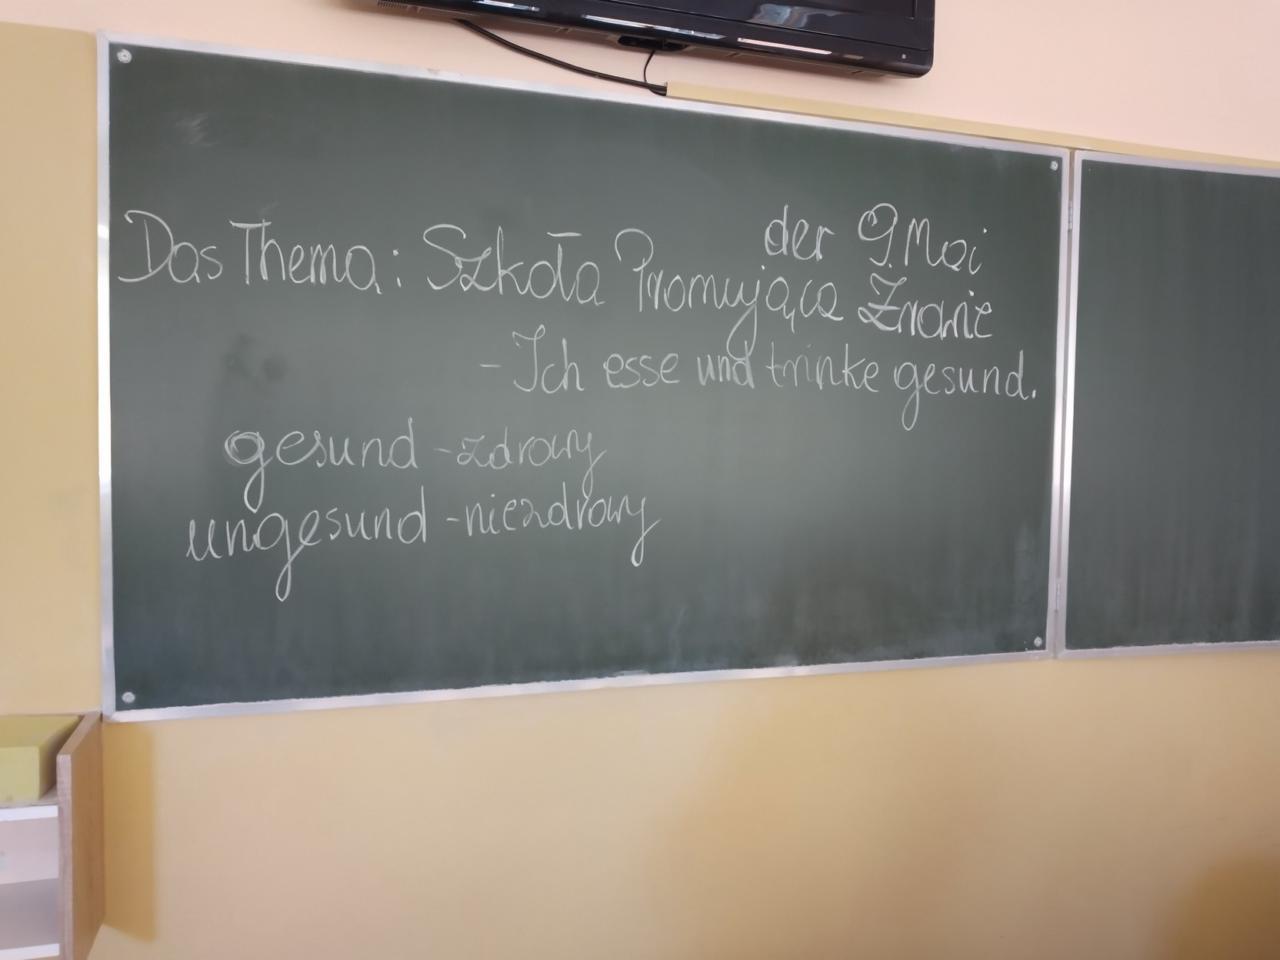 der 9 Mai
Das Thema: Szkoła Promująca Zdrowie
- Ich esse und trinke gesund.
gesund - zdrowy
ungesund - niezdrowy